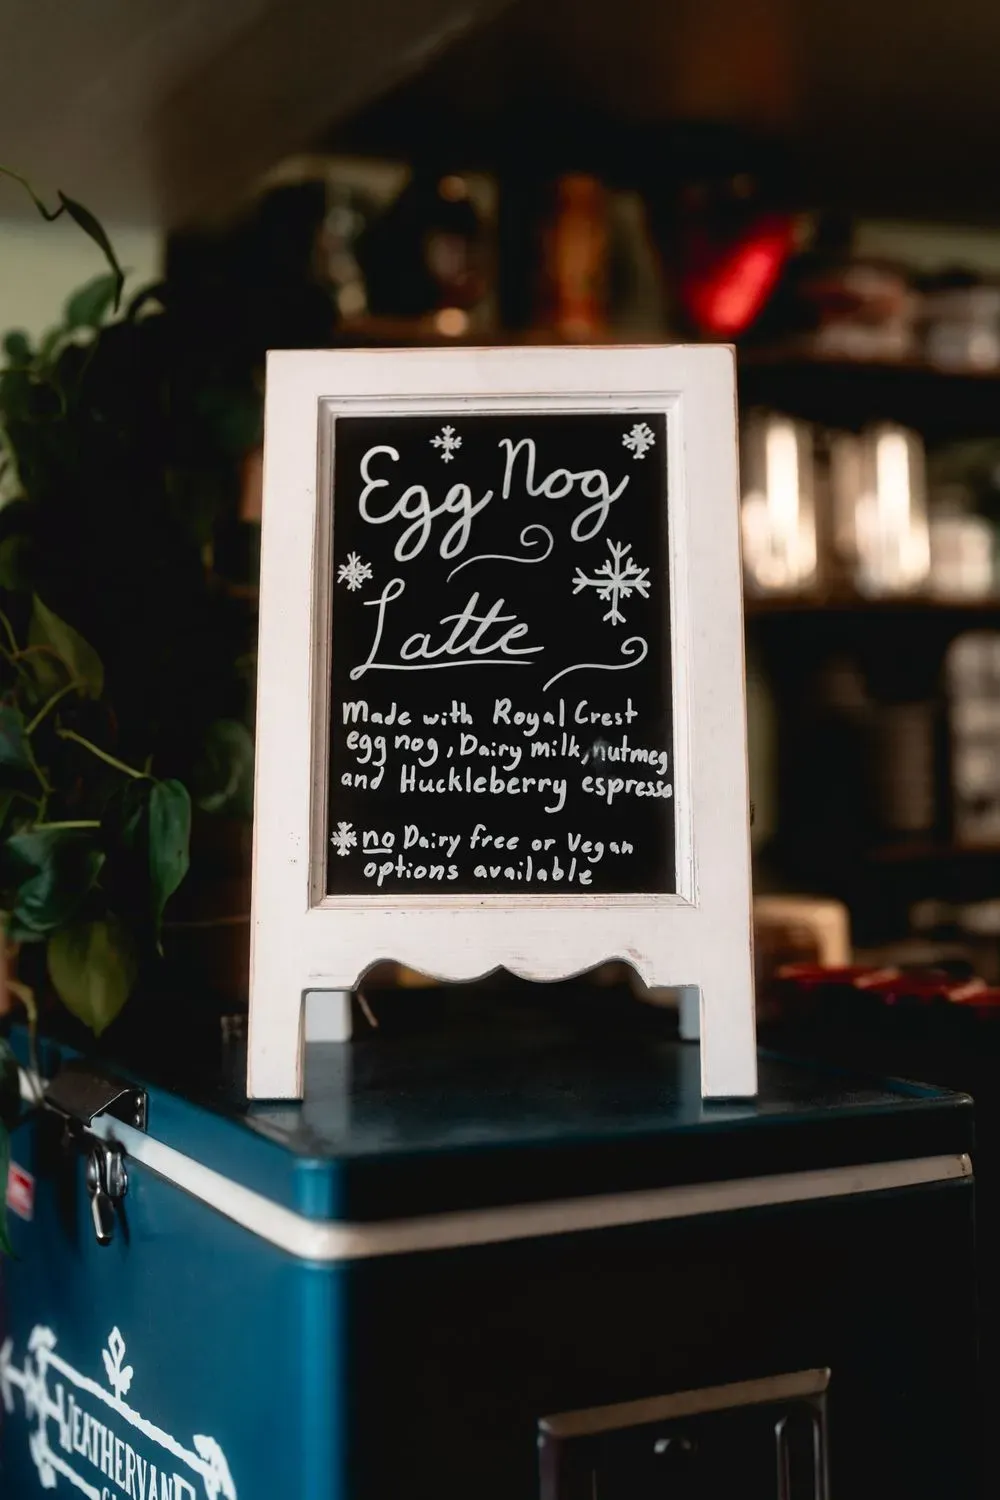 Egg Nog
Latte
Made with Royal Crest
egg nog, Dairy milk, nutmeg
and Huckleberry espresso
no Dairy free or Vegan
options available